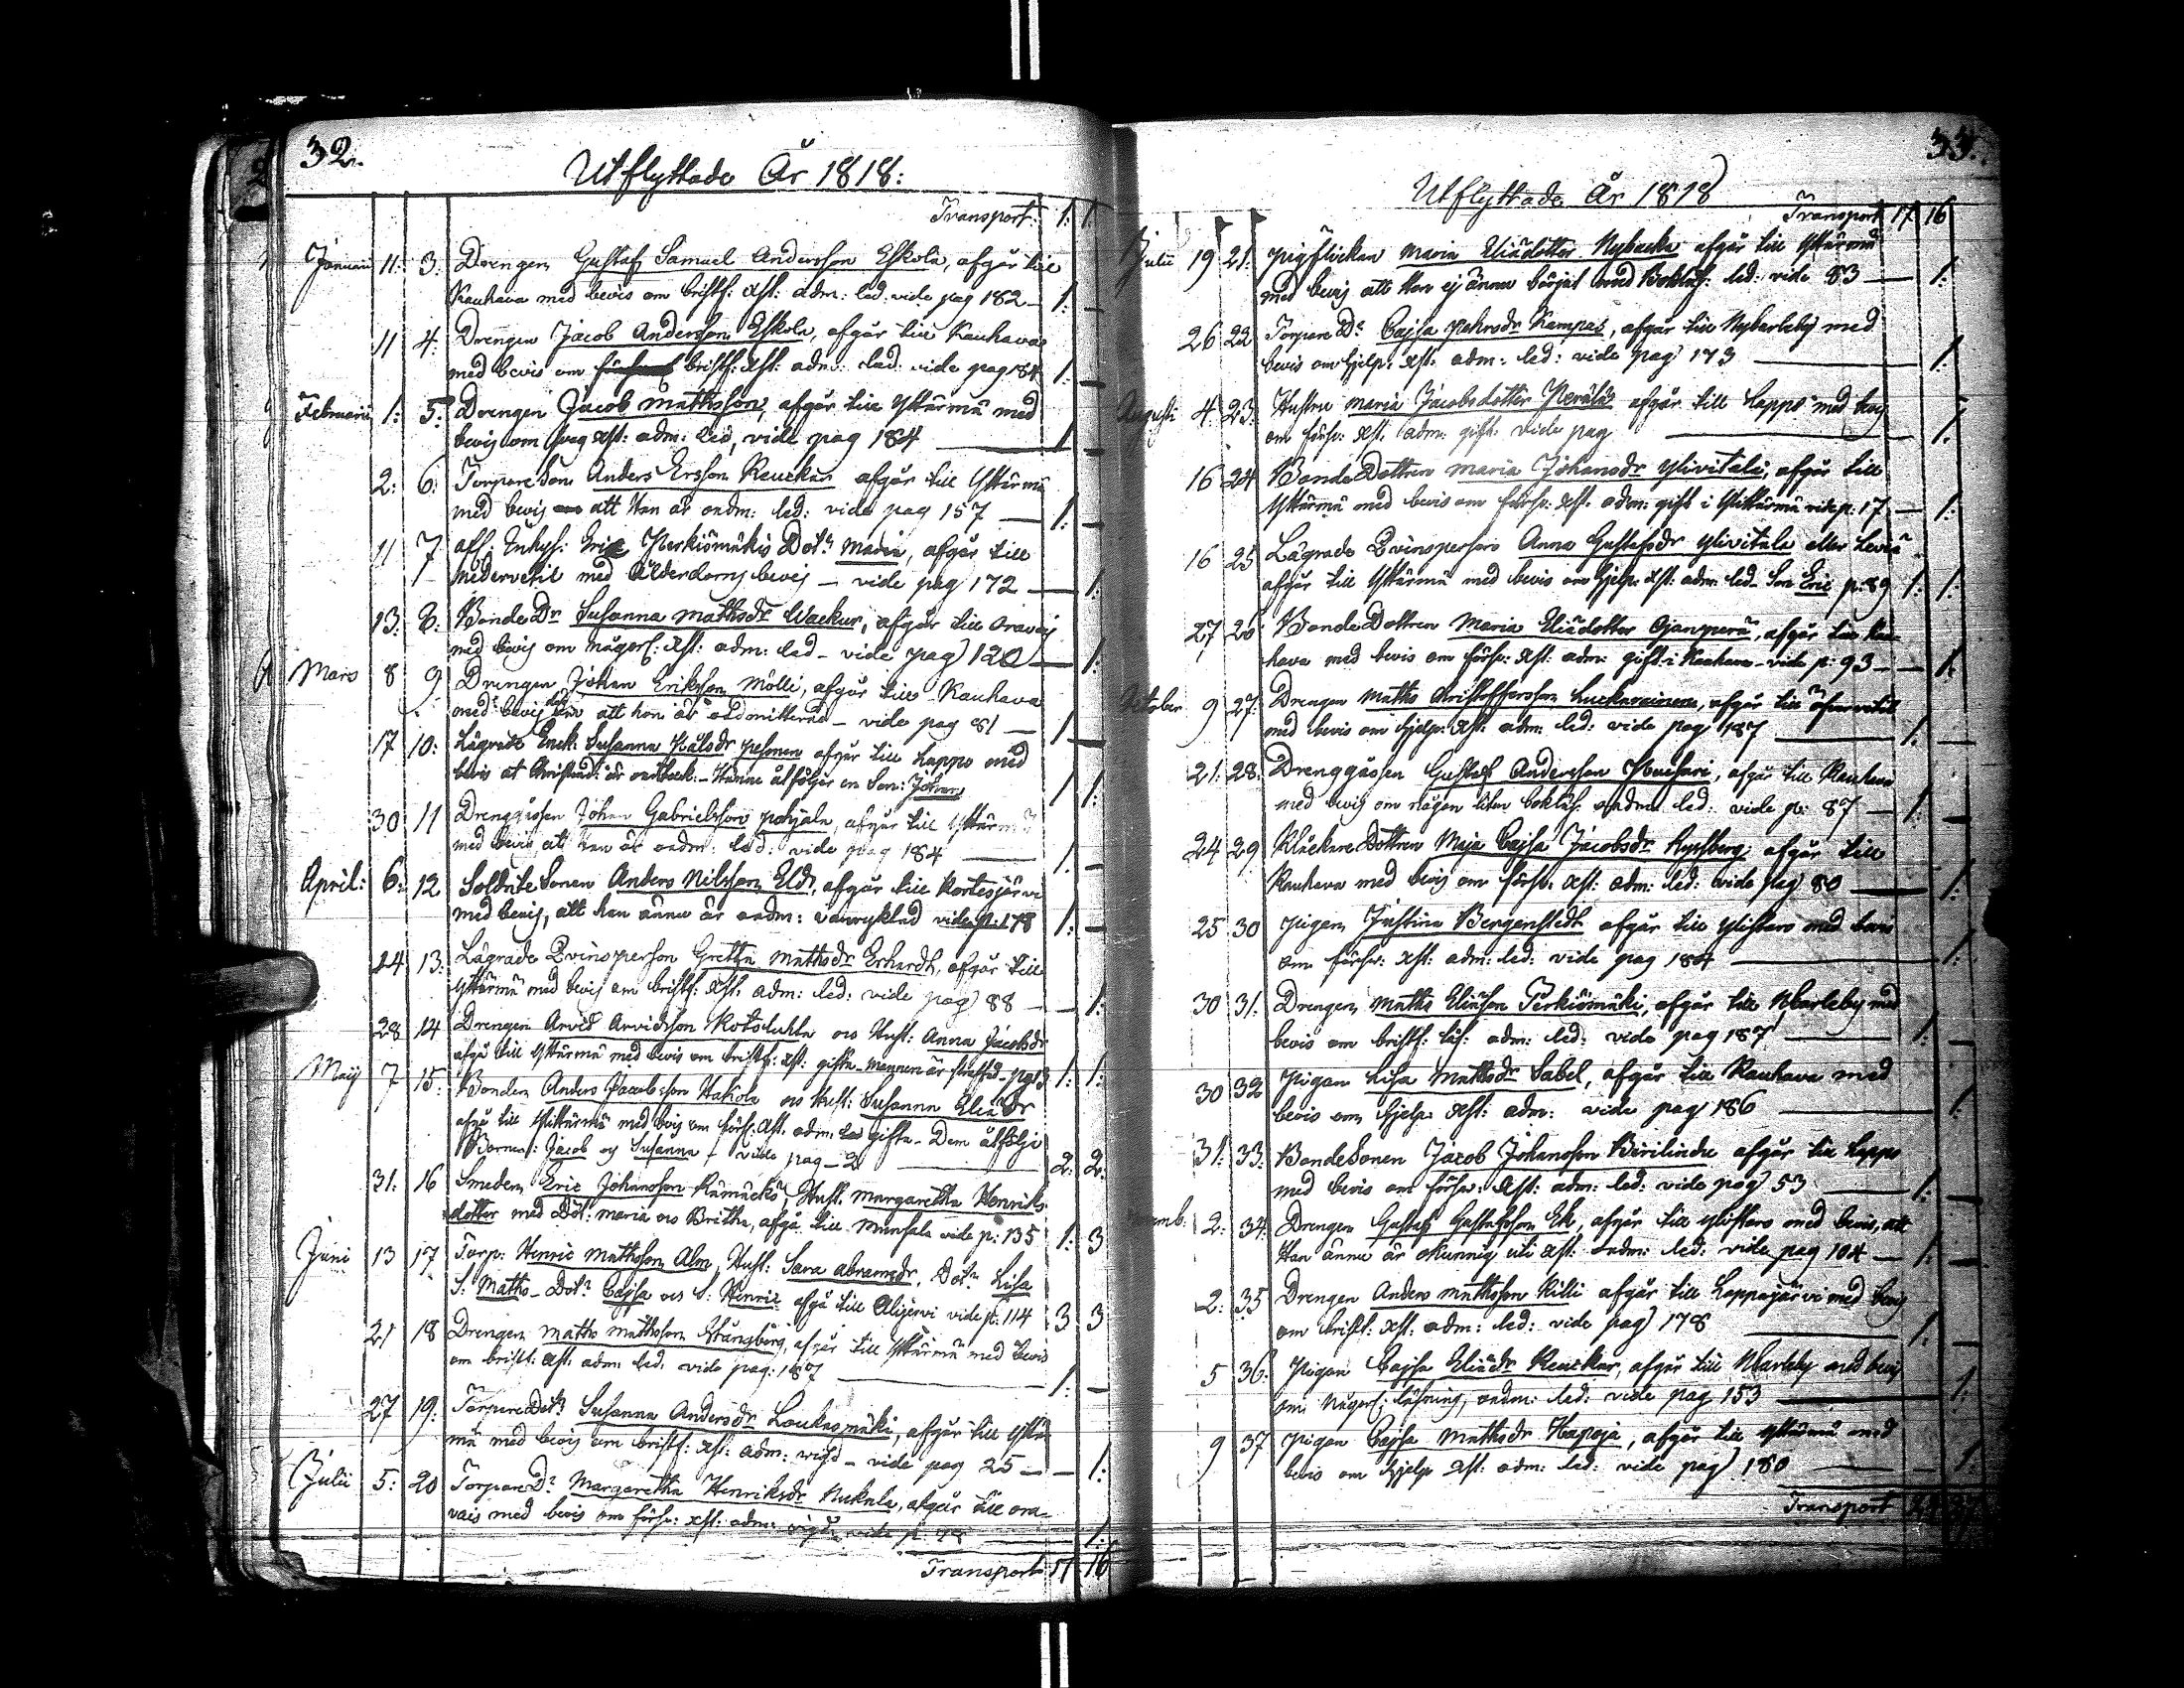 32.
Utflyttade År 1818:
Transport: 1: 1
Januari 11: 3: Drengen Gustaf Samuel Andersson Eskola, afgår till
Kauhava med bevis om kristl: Xst: adm: led: vide pag 182 — 1: —
11 4: Drengen Jacob Andersson Eskola, afgår till Kauhava
med bevis om kristl: Xst: adm: led: vide pag 184 1: —
Februarii 1: 5: Drengen Jacob Mathsson, afgår till Yttermä med
bevis om svag Xst: adm: led, vide pag 184 — 1 —
2: 6: Torpare Son Anders Ersson Reuckar afgår till Yttermä
med bevis att Han är oadm: led: vide pag 157 — 1: —
11 7 aff: Inhys: Eric Perkiömäkis Dotr Maria, afgår till
Nedervetil med Ålderdoms bevis — vide pag 172 — 1:
13: 8: Bonde Dr Susanna Mathsdr Wackur, afgår till Oravais
med bevis om någorl: Xst: adm: led — vide pag 120 — 1:
Mars 8 9 Drengen Johan Eriksson Mölli, afgår till Kauhava
med bevis att han är oadmitterad — vide pag 81 — 1 —
17 10: Lägrade Enck: Susanna Pålsdr afgår till Lappo med
bevis at Christend: är — Henne åtföljer en Son: Johan 1 1:
30 11 Drenggossen Johan Gabrielsson Pohjala, afgår till Ytterm
med bevis att han är oadm: led: vide pag 184 — 1: —
April: 6: 12 Soldate Sonen Anders Nilsson Eld, afgår till Kortesjärvi
med bevis, att han ännu är oadm: vide p. 178 1: —
24 13: Lägrade Qvinsperson Greta Mathsdr Erhardt, afgår till
Yttermä med bevis om kristl: Xst: adm: led: vide pag 88 — — 1:
28 14 Drengen Arvid Arvidsson Kotiluhta och Hust: Anna Jacobsdr
afgå till Yttermä med bevis om kristl: Xst: gifta mannen är straffad — pag 13 1: 1:
Maij 7 15: Bonden Anders Jacobsson Hakola och Hust: Susanna Eliædr
afgå till Yttermä med bevis om förs: Xst. adm. led gifta — Dem åtfölje
Barnen: Jacob och Susanna — vide pag — 2 — 2: 2:
31: 16 Smeden Eric Johansson Rumäcks, Hust: Margaretha Henriks
dotter med Döt: Maria och Britha, afgå till Munsala vide p: 135 1: 3
Juni 13 17 Torp: Henric Mathsson Alm, Hust: Sara Abramsdr, Dotr Lisa
S: Maths — Dotr Cajsa och S: Henric afgå till Alajervi vide p: 114 3 3
21 18 Drengen Maths Mathsson Strångberg, afgår till Yttermä med bevis
om kristl: Xst: adm: led: vide pag: 187 — 1: —
27 19: Torpare Dotr Susanna Andersdr Loukasmäki, afgår till Ytter
mä med bevis om kristl: Xst: adm: vigd — vide pag 25 — — 1:
Julii 5: 20 Torpare Dr Margaretha Henriksdr Nukala, afgår till Ora-
vais med bevis om förs: Xst: adm: vigd vide p. 1:
Transport 17 16
33.
Utflyttade År 1818
Transport 17 16
Julii 19 21: Pigflickan Maria Eliædotter Nybacka afgår till Yttermä
med bevis att Hon ej ännu börjat med Bokläs: led: vide 83 — 1:
26 22 Torpare Dr Cajsa Pehrsdr Kampas, afgår till Nykarleby med
bevis om hjelp: Xst: adm: led: vide pag 173 — 1:
Augusti 4: 23: Hustru Maria Jacobsdotter Perälä afgår till Lappo med bevis
om förs: Xst. adm: gift: vide pag — 1:
16 24 Bonde Dottren Maria Johansdr Ylivitali, afgår till
Yttermä med bevis om förs: Xst. adm: gift i Yttermä vide p: 17 — 1:
16 25 Lägrade Qvinsperson Anna Gustafsdr Ylivitala eller Leviä
afgår till Yttermä med bevis om hjelp: Xst: adm: led — Son Eric p: 89 1: 1:
27 26 Bonde Dottren Maria Eliædotter Ojanperä, afgår till Kau-
hava med bevis om förs: Xst: adm: gift i Kauhava — vide p: 93 — — 1:
October 9 27: Drengen Maths Christoffersson afgår till Öfvervetil
med bevis om hjelp: Xst: adm: led: vide pag 187 — 1: —
21: 28: Drenggossen Gustaf Andersson afgår till Kauhava
med bevis om någon liten bokläs: oadm: led: vide p: 87 — 1: —
24 29 Klåckare Dottren Maja Cajsa Jacobsdr afgår till
Kauhava med bevis om förs: Xst: adm: led: vide pag 80 — 1:
25 30 Pigan Justina Bergenstedt afgår till Ylistaro med bevis
om förs: Xst: adm: led: vide pag 184 — 1:
30 31. Drengen Maths Eliæson Perkiömäki, afgår till NCarleby med
bevis om kristl: läs: adm: led: vide pag 187 — 1: —
30 32 Pigan Lisa Mathsdr Sabel, afgår till Kauhava med
bevis om hjelp: Xst: adm: vide pag 186 — 1:
31: 33: Bonde Sonen Jacob Johansson afgår till Lappo
med bevis om förs: Xst: adm: led: vide pag 53 — 1: —
Novemb: 2: 34: Drengen Gustaf Gustafsson Ek, afgår till Ylistaro med bevis, att
Han ännu är okunnig uti Xst: oadm: led: vide pag 104 — 1: —
2: 35 Drengen Anders Mathsson Killi afgår till Lappajärvi med bevis
om kristl: Xst: adm: led: vide pag 178 — 1: —
5 36: Pigan Cajsa Eliædr Reuckar, afgår till NCarleby med bevis
om någorl: läsning, oadm: led: vide pag 153 — 1:
9 37 Pigan Cajsa Mathsdr Hapoja, afgår till Yttermä med
bevis om hjelp: Xst: adm: led: vide pag 180 — 1:
Transport